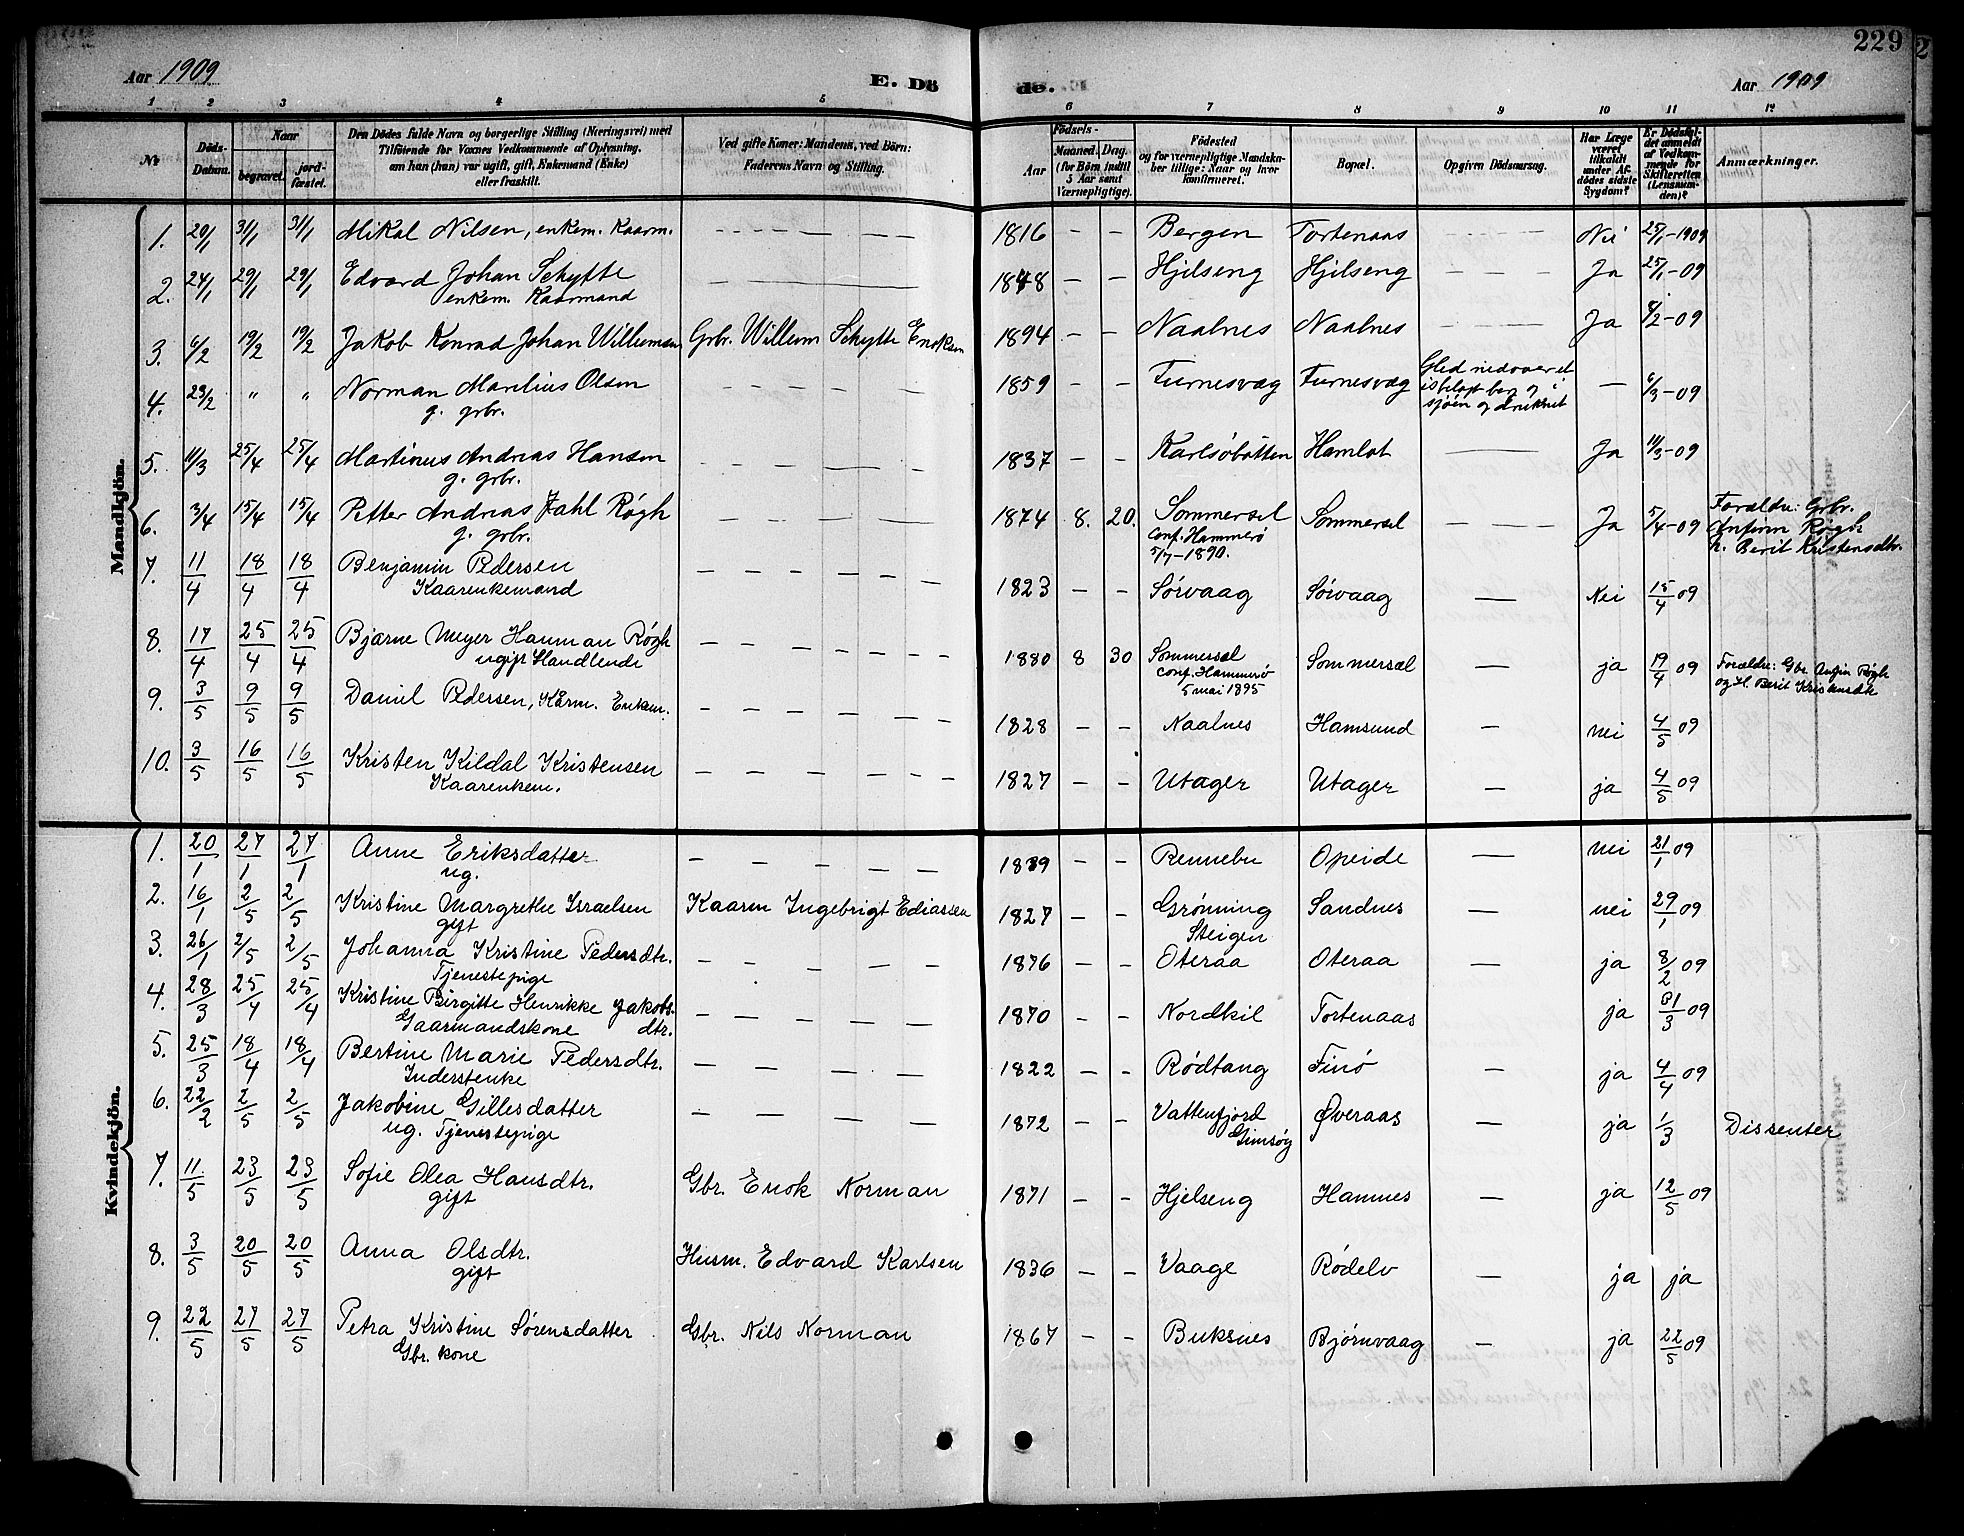 229
Aar 1909
E. Dö
de.
Aar 1909
1 2 3 4 5 6 7 8 9 10 11 12
№
Döds-Datum.
Naar
begravet.
jordfæstet.
Den Dödes fulde Navn og borgerlige Stilling (Næringsvei) med
Tilföiende for Voxnes Vedkommende af Oplysning,
om han (hun) var ugift, gift, Enkemand (Enke)
eller fraskilt.
Ved gifte Koner: Mandens, ved Börn:
Faderens Navn og Stilling.
Födsels-
Aar
Maaned. Dag.
(for Börn indtil
5 Aar samt
Værnepligtige).
Födested
og for værnepligtige Mandskaber tillige: Naar og hvor konfirmeret.
Bopæl.
Opgiven Dödsaarsag.
Har Læge
været
tilkaldt
under Afdödes sidste
Sygdom?
Er Dödsfaldet anmeldt
af Vedkommende for
Skifteretten
(Lensmanden)?
Anmærkninger.
Mandkjön.
1. 20/1 31/1 31/1 Mikal Nilsen, enkem. Kaarm. 1816 - - Bergen Tortenaas Nei 25/1-1909
2. 24/1 29/1 29/1 Edvard Johan Schytte 1848 - - Hjilseng Hjilseng Ja 25/1-09
enkem. Kaarmand
3. 6/2 19/2 19/2 Jakob Konrad Johan Willumsen Grbr. Willum Schytte Enoksen 1894 - - Naalnes Naalnes Ja 8/2-09
4. 23/2 " " Norman Marelius Olsen 1859 - - Furnesvæg Furnesvæg Gled nedover et
isbelagt berg og i
sjøen og druknet — 6/3-09
g. grbr.
5. 11/3 25/4 25/4 Martinus Andreas Hansen 1837 - - Karlsöbotten Hamlot Ja 11/3-09
g. grbr.
6. 3/4 15/4 15/4 Petter Andreas Zahl Røgh 1874 8. 20. Sommersel Sommersel Ja 5/4-09 Forældre: Grbr.
g. grbr. conf. Hammerø
5/7-1890. Anfinn Røgh
h. Berit Kristensdtr.
7. 11/4 18/4 18/4 Benjamin Pedersen 1823 - - Sørvaag Sørvaag — Nei 15/4 09
Kaarenkemand
8. 17/4 25/4 25/4 Bjarne Meyer Hanman Røgh 1880 8 30 Sommersel Sommersæl — ja 19/4 09 Forældre: Gbr. Anfin Røgh
ugift Handlende conf. Hammerø
5 mai 1895 og H. Berit Kristensdtr
9. 3/5 9/5 9/5 Daniel Pedersen, Kårm. Enkem. 1828 - - Naalnes Hamsund — nei 4/5 09
10. 3/5 16/5 16/5 Kristen Kildal Kristensen 1827 - - Utager Utager — ja 4/5 09
Kaarenkem.
Kvindekjön.
1. 20/1 27/1 27/1 Anne Eriksdatter 1839 - - Rennebu Opeide — nei 21/1 09
ug.
2. 16/1 2/5 2/5 Kristine Margrethe Israelsen Kaarm Ingebrigt Ediassen 1827 - - Grønning Sandnes — nei 29/1 09
gift Steigen
3. 26/1 2/5 2/5 Johanna Kristine Pedersdtr. 1876 - - Oteraa Oteraa — ja 8/2 09
Tjenestepige
4. 28/3 25/4 25/4 Kristine Birgitte Henrikke Jakobs- 1870 - - Nordkil Tortenaas ja 31/3 09
Gaarmandskone dtr.
5. 25/3 18/4 18/4 Bertine Marie Pedersdtr. 1822 - - Rødtang Finø — ja 4/4 09
Inderstenke
6. 22/2 2/5 2/5 Jakobine Gillesdatter 1872 - - Vattenfjord Øveraas — ja 1/3 Dissenter
ug. Tjenestepige Gimsøy
7. 11/5 23/5 23/5 Sofie Olea Hansdtr. Gbr. Enok Norman 1871 - - Hjelseng Hamnes — ja 12/5 09
gift
8. 3/5 20/5 20/5 Anna Olsdtr. Husm. Edvard Karlsen 1836 - - Vaage Rødelv — ja ja
gift
9. 22/5 27/5 27/5 Petra Kristine Sørensdatter Gbr. Nils Norman 1867 - - Buksnes Bjørnvaag — ja 22/5 09
Gbr. kone